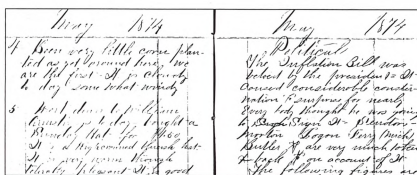 May 1874
4 Been very little corn plan-
ted as yet around here, we
are the first. It is cloudy
to day some what windy
5 Went down to William
to day bought a
Hat for
It is
It is very warm through
pleasant it is good
May 1874
Political
The Inflation Bill was
vetoed by the president & It
caused considerable conster-
nation & surprise for nearly
Every body thought he was going
to Sign It
Morton Logan Ferry Mich
Butler & are very much
& back on account of it
The following figures are